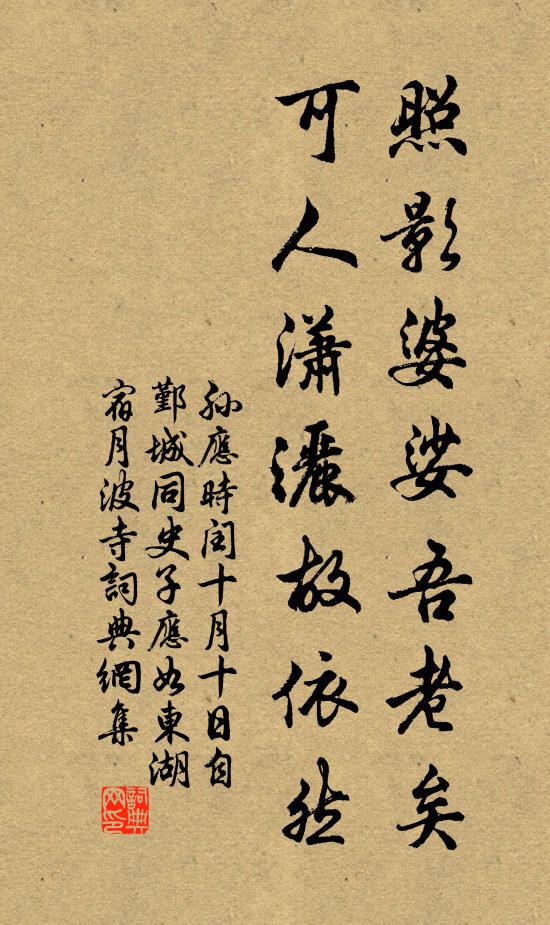 照影婆娑吾老矣
可人瀟灑故依然
孫應時閏十月十日自
鄞城同史子應如東湖
宿月波寺詞典網集
詞典網印